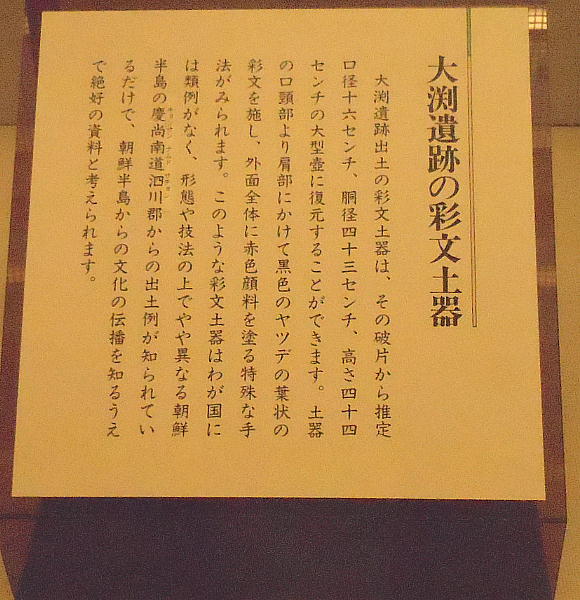 大渕遺跡の彩文土器
大渕遺跡出土の彩文土器は、その破片から推定
口径十六センチ、胴径四十三センチ、高さ四十四
センチの大型壺に復元することができます。土器
の口頸部より肩部にかけて黒色のヤツデの葉状の
彩文を施し、外面全体に赤色顔料を塗る特殊な手
法がみられます。このような彩文土器はわが国に
は類例がなく、形態や技法の上でやや異なる朝鮮
半島の慶尚南道泗川郡からの出土例が知られてい
るだけで、朝鮮半島からの文化の伝播を知るうえ
で絶好の資料と考えられます。